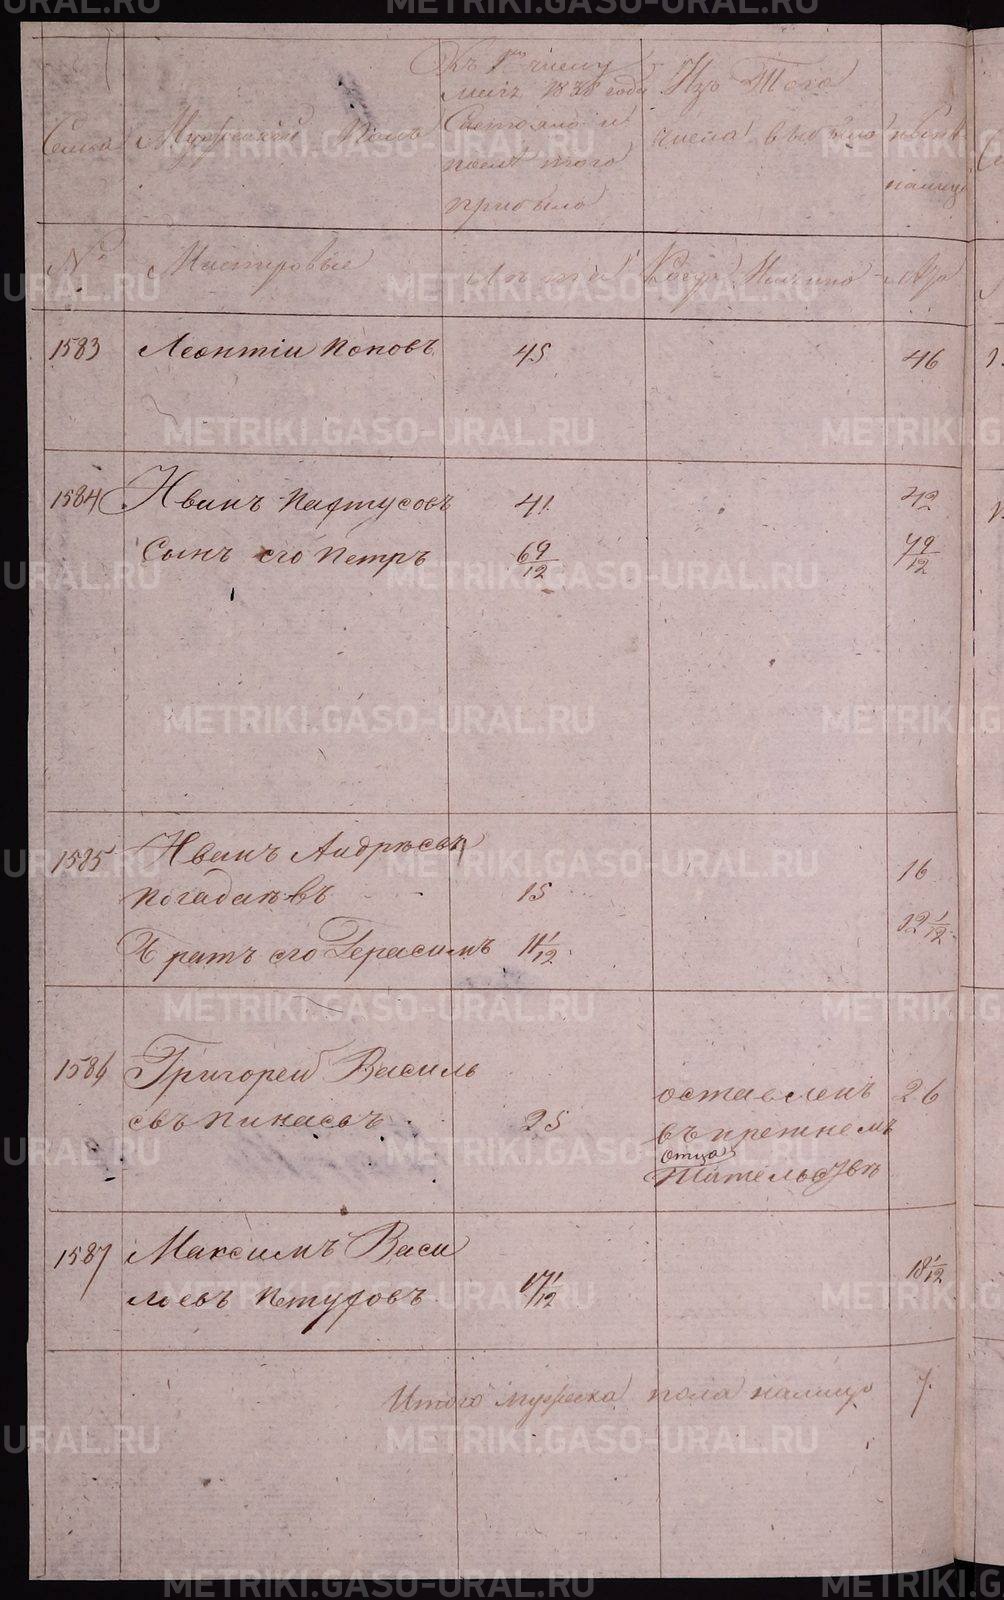 Семьи
Мужескій Полъ
Къ 1му числу
маія 1838 года
Состояло и
послѣ того
прибыло
Изъ Того
числа выбыло
налицо
№
Мастеровые
Лѣта
Когда Именно
Лѣта
1583
Леонтіи Поповъ
45
46
1584
Иванъ Партусовъ
41
42
Сынъ его Петръ
6 9/12
7 9/12
1585
Иванъ Андрѣевъ
Погадаѣвъ
15
16
Братъ его Герасимъ
11 1/12
12 1/12
1586
Григорей Василь
евъ Пинаевъ
25
оставленъ
въ прежнемъ
отца
26
1587
Максимъ Васи
льевъ Петуховъ
17 1/12
18 1/12
Итого мужеска пола налицо
7
METRIKI.GASO-URAL.RU